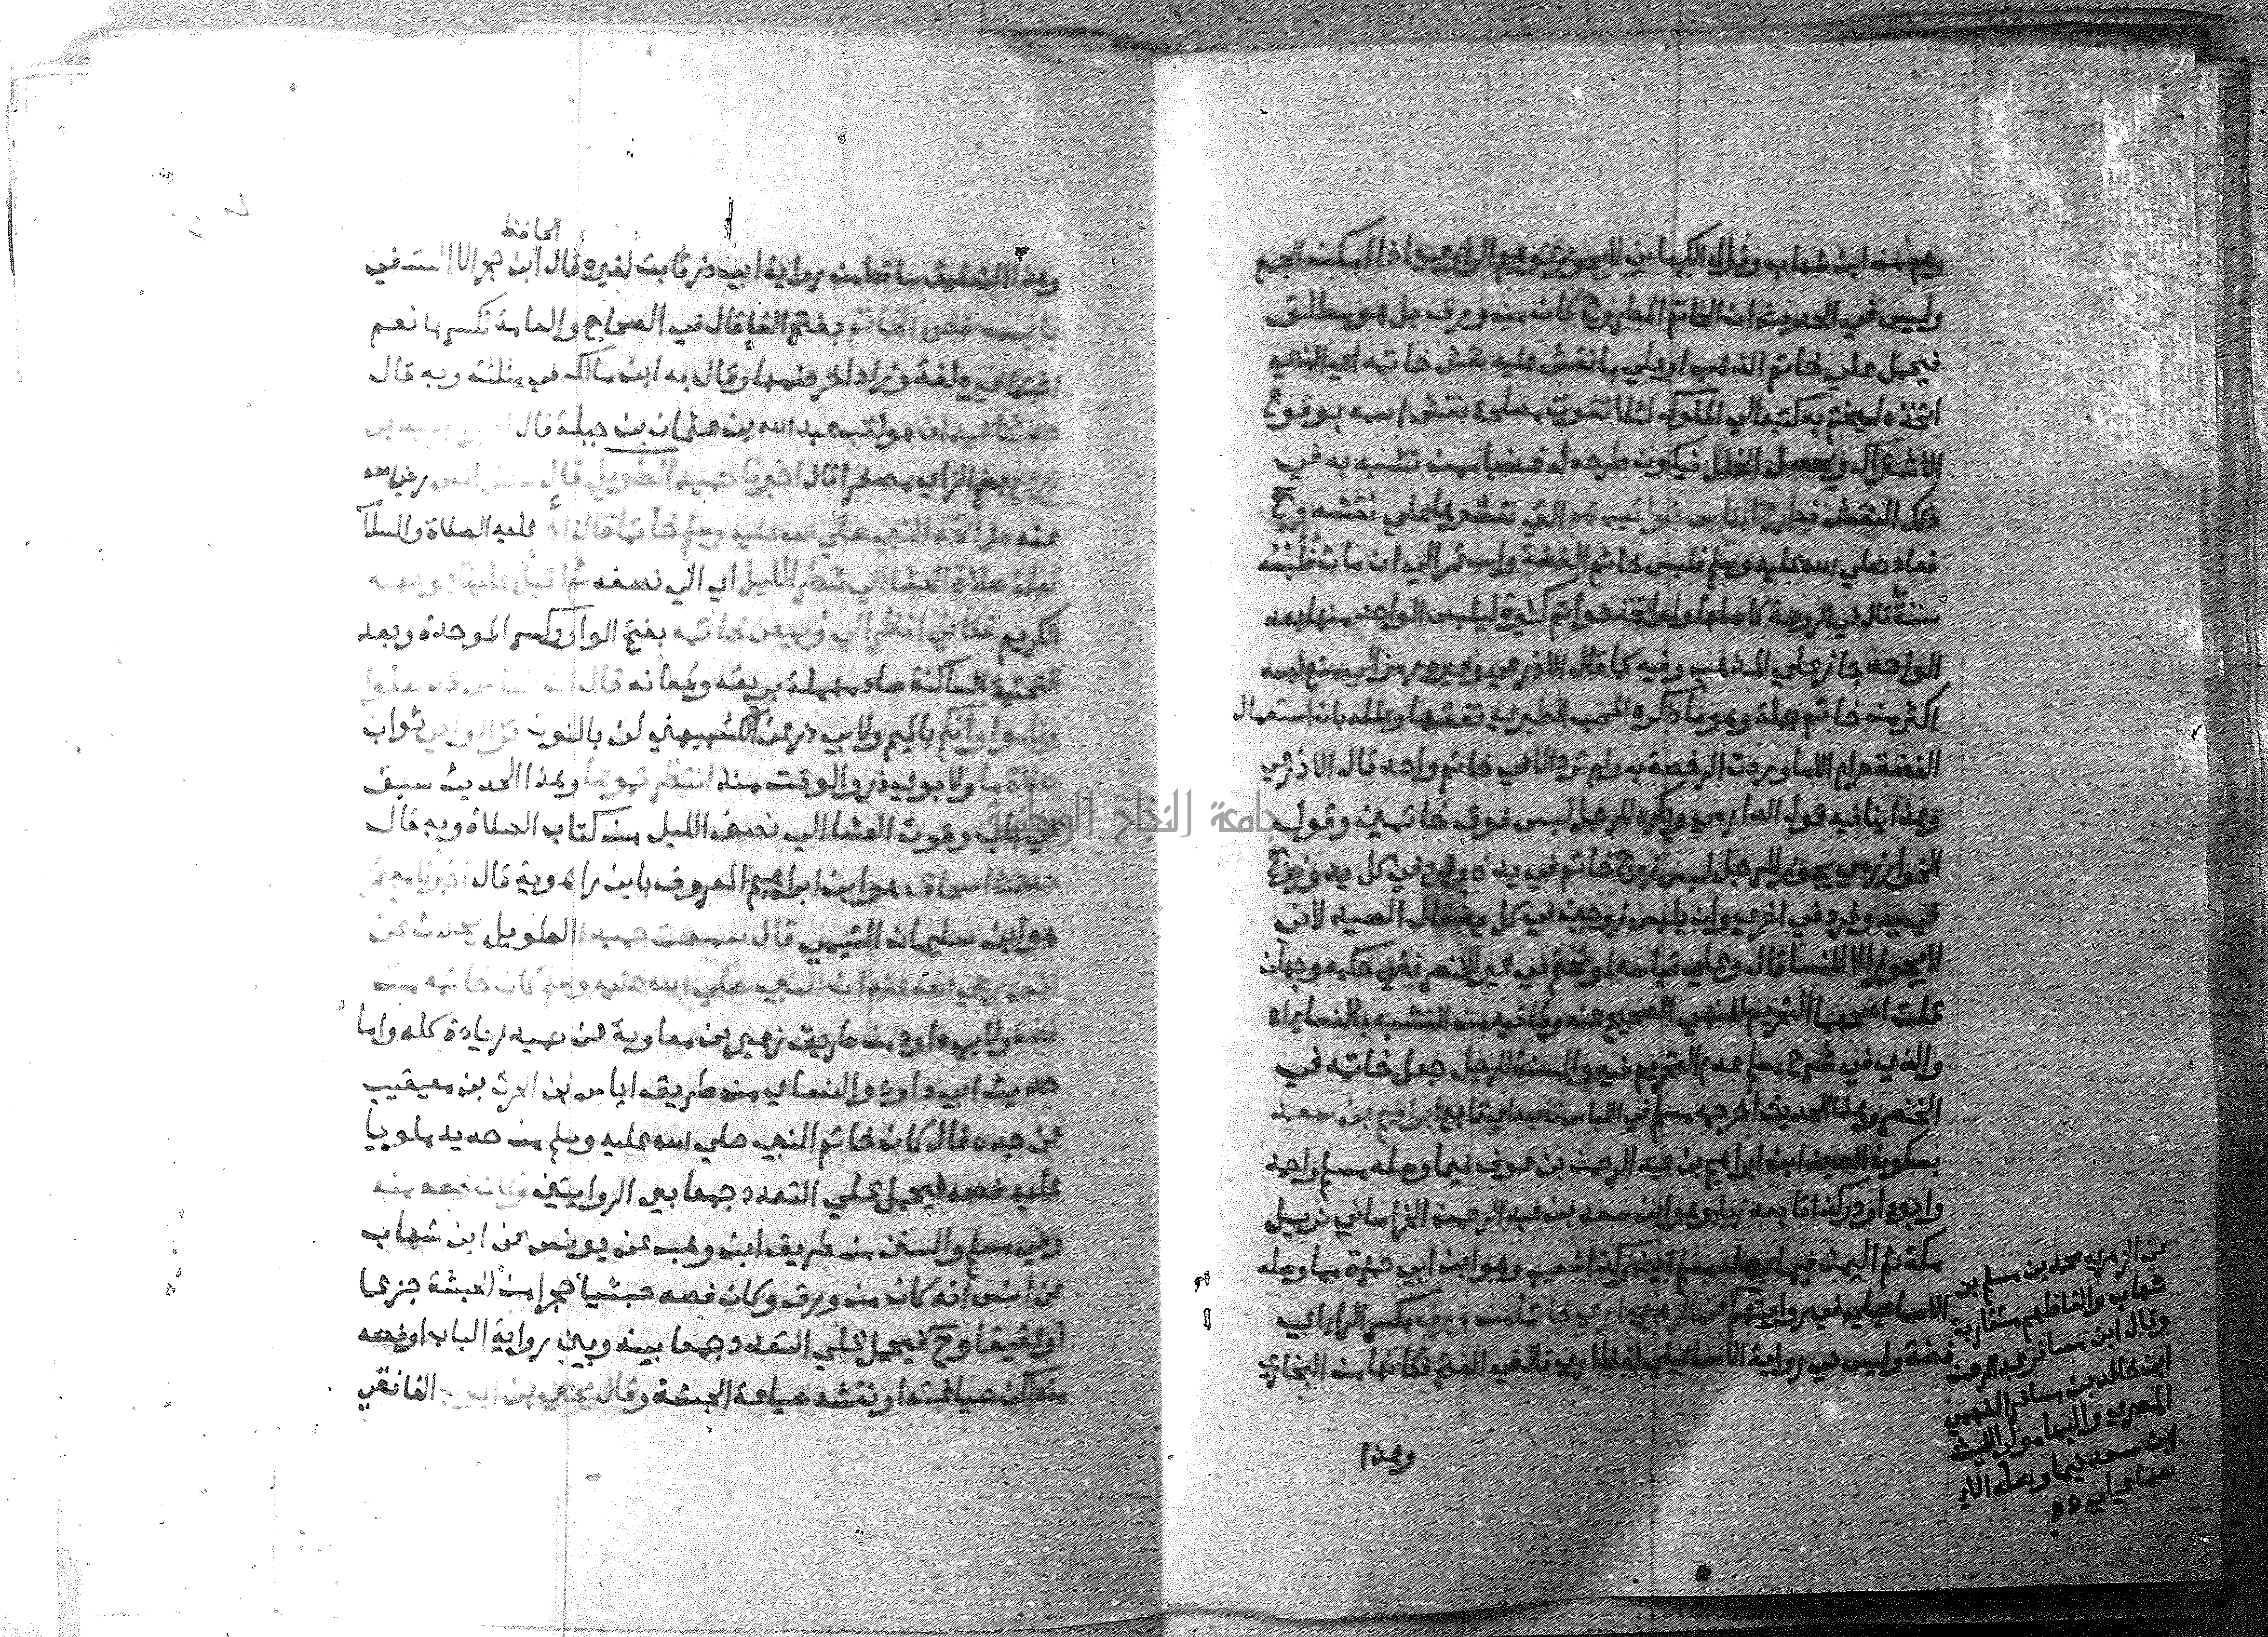 وهم من ابن شهاب وقول الكرماني لا يجوز توهيم الراوي اذا امكن الجمع
وليس في الحديث ان الخاتم المطروح كان من ورق بل هو مطلق
فيحمل علي خاتم الذهب او علي ما نقش عليه نقش خاتمه اي الذي
اتخذه ليختم به كتبه الي الملوك لئلا تفوت مصلحة نقش اسمه بوقوع
الاشتراك ويحصل الخلل فيكون طرحه له غضبا ممن تشبه به في
ذلك النقش فطرح الناس خواتيمهم التي نقشوها علي نقشه وح
فعاد صلي الله عليه وسلم فلبس خاتم الفضة واستمر الي ان مات
قال في الروضة كاصلها ولو اتخذ خواتم كثيرة ليلبس الواحد منها بعد
الواحد جاز علي المذهب وفيه كما قال الاذرعي وغيره رمز الي منع لبسه
اكثر من خاتم جملة وهو ما ذكره المحب الطبري تفقها وعلله بان استعمال
الفضة حرام الا ما وردت الرخصة به ولم ترد الا في خاتم واحد قال الاذرعي
وهذا ينافيه قول الدارمي ويكره للرجل لبس فوق خاتمين وقول
الخوارزمي يجوز للرجل لبس زوج خاتم في يده وفرد في كل يد وزوج
في يد وفرد في اخري وان يلبس زوجين في كل يد قال الصيدلاني
لا يجوز الا للنسا قال وعلي قياسه لو تختم في غير الخنصر ففي حكمه وجهان
قلت اصحهما التحريم للنهي الصحيح عنه ولما فيه من التشبه بالنسا
والذي في شرح مسلم عدم التحريم فيه والسنة للرجل جعل خاتمه في
الخنصر وهذا الحديث اخرجه مسلم في اللباس تابعه اي تابع ابراهيم بن سعد
بسكون العين ابن ابراهيم بن عبد الرحمن بن عوف فيما وصله مسلم واحمد
وابو داود وكذا تابعه زياد وهو ابن سعد بن عبد الرحمن الخراساني نزيل
مكة ثم اليمن فيما وصله مسلم ايضا وكذا شعيب وهو ابن ابي حمزة مما وصله
الاسماعيلي في روايتهم عن الزهري اري خاتما من ورق بكسر الراء اي
فضة وليس في رواية الاسماعيلي لفظ اري قال في الفتح فكانها من البخاري
عن الزهري محمد بن مسلم بن
شهاب والفاظهم متقاربة
وقال ابن مسافر عبد الرحمن
ابن خالد بن مسافر الفهمي
المصري واليها مولي الليث
بن سعد فيما وصله الا
سماعيلي
وهذا
الحافظ
وهذا التعليق ساقط من رواية ابي ذر ثابت لغيره قال ابن حجر الا انه في
باب فص الخاتم بفتح الفا قال في الصحاح والعامة تكسرها نعم
اثبتها غيره لغة وزاد اخر ضمها وقال به ابن مالك في مثلثه وبه قال
حدثنا عبدان هو لقب عبد الله بن عثمان بن جبلة قال اخبرنا يزيد بن
زريع بضم الزاي مصغرا قال اخبرنا حميد الطويل قال سئل انس رضي الله
عنه هل اتخذ النبي صلي الله عليه وسلم خاتما قال اخر عليه الصلاة والسلام
ليلة صلاة العشا الي شطر الليل اي الي نصفه ثم اقبل علينا بوجهه
الكريم فكاني انظر الي وبيص خاتمه بفتح الواو وكسر الموحدة وبعد
التحتية الساكنة صاد مهملة بريقه ولمعانه قال ان الناس قد صلوا
وناموا وانكم بالميم ولابي ذر عن الكشميهني لن بالنون تزالوا في ثواب
صلاة ما ولابوي ذر والوقت منذ انتظرتموها وهذا الحديث سبق
في باب وقوت العشا الي نصف الليل من كتاب الصلاة وبه قال
حدثنا اسحاق هو ابن ابراهيم المعروف بابن راهويه قال اخبرنا معتمر
هو ابن سليمان التيمي قال سمعت حميدا الطويل يحدث عن
انس رضي الله عنه ان النبي صلي الله عليه وسلم كان خاتمه من
فضة ولابي داود من طريق زهير بن معاوية عن حميد زيادة كله واما
حديث ابي داود والنساي من طريق اياس بن الحرث بن معيقيب
عن جده قال كان خاتم النبي صلي الله عليه وسلم من حديد ملويا
عليه فضة فيحمل علي التعدد جمعا بين الروايتين وكان فصه منه
وفي مسلم والسنن من طريق ابن وهب عن يونس عن ابن شهاب
عن انس انه كان من ورق وكان فصه حبشيا حجرا من الحبشة جزعا
او عقيقا وح فيحمل علي التعدد جمعا بينه وبين رواية الباب او فصه
منه لكن صياغته او نقشه صياغة الحبشة وقال يحيي بن ايوب الغافقي
جامعة النجاح الوطنية